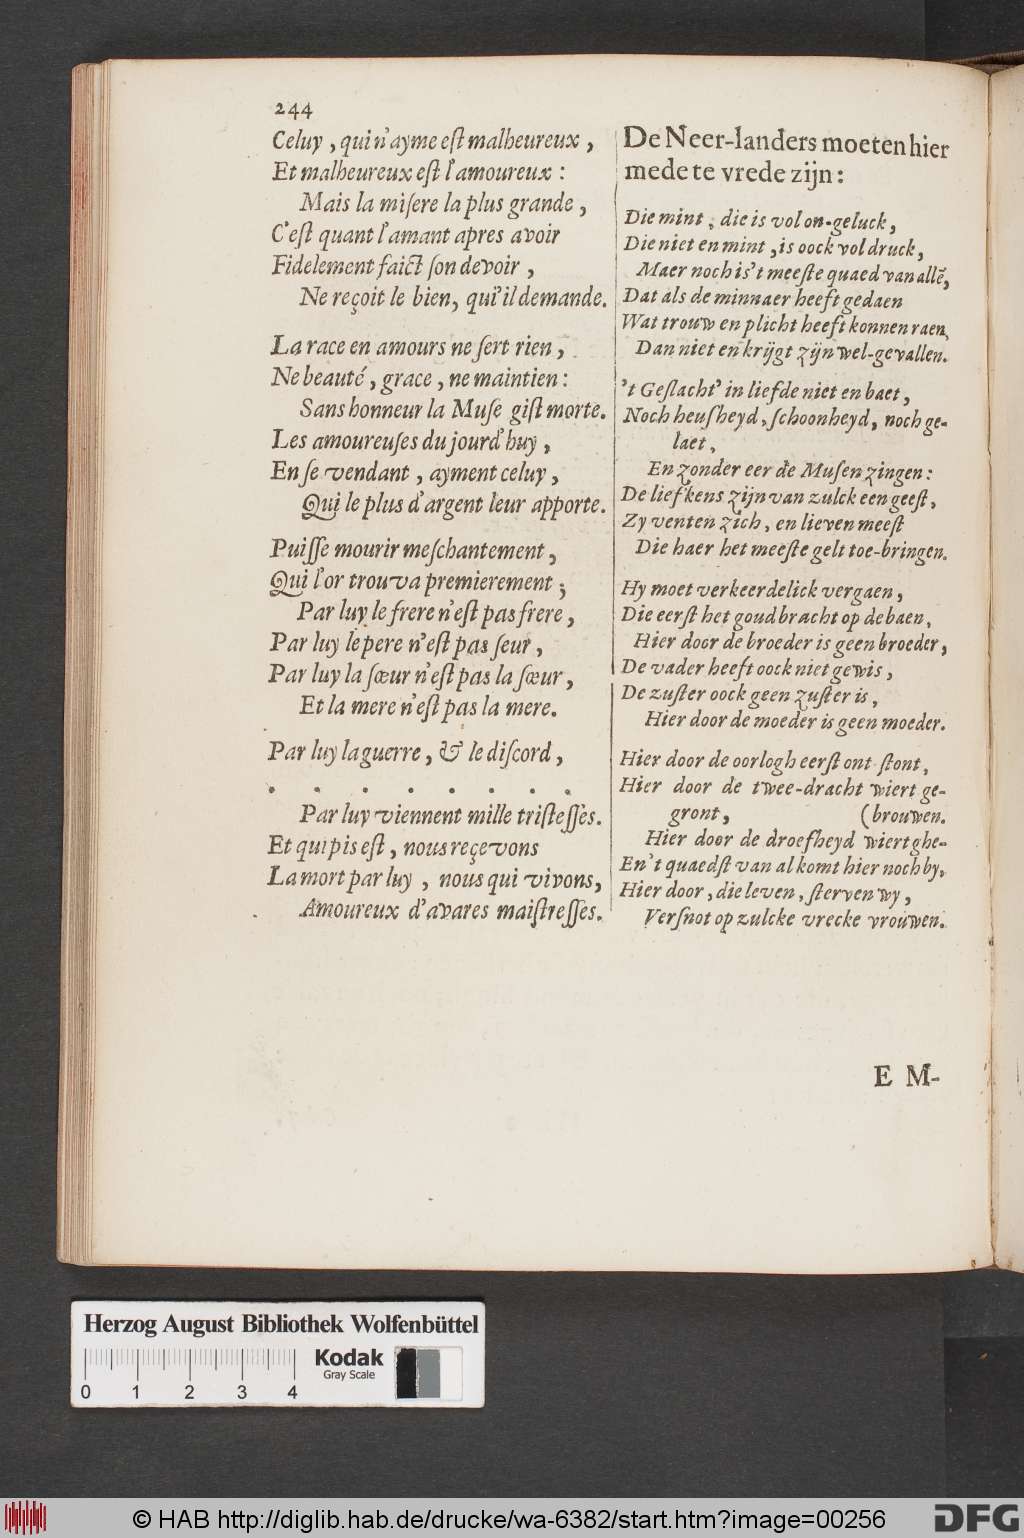 244
Celuy, qui n'ayme est malheureux,
Et malheureux est l'amoureux:
Mais la misere la plus grande,
C'est quant l'amant apres avoir
Fidelement faict son devoir,
Ne reçoit le bien, qu'il demande.
La race en amours ne sert rien,
Ne beauté, grace, ne maintien:
Sans honneur la Muse gist morte.
Les amoureuses du jourd'huy,
En se vendant, ayment celuy,
Qui le plus d'argent leur apporte.
Puisse mourir meschantement,
Qui l'or trouva premierement;
Par luy le frere n'est pas frere,
Par luy le pere n'est pas seur,
Par luy la sœur n'est pas la sœur,
Et la mere n'est pas la mere.
Par luy la guerre, & le discord,
. . . . . . . .
Par luy viennent mille tristesses.
Et qui pis est, nous reçevons
La mort par luy, nous qui vivons,
Amoureux d'avares maistresses.
De Neer-landers moeten hier
mede te vrede zijn:
Die mint, die is vol on-geluck,
Die niet en mint, is oock vol druck,
Maer noch is't meeste quaed van allē,
Dat als de minnaer heeft gedaen
Wat trouw en plicht heeft konnen raen,
Dan niet en krijgt zijn wel-gevallen.
't Geslacht' in liefde niet en baet,
Noch heusheyd, schoonheyd, noch ge-
laet,
En zonder eer de Musen zingen:
De lief'kens zijn van zulck een geest,
Zy venten zich, en lieven meest
Die haer het meeste gelt toe-bringen.
Hy moet verkeerdelick vergaen,
Die eerst het goud bracht op de baen,
Hier door de broeder is geen broeder,
De vader heeft oock niet gewis,
De zuster oock geen zuster is,
Hier door de moeder is geen moeder.
Hier door de oorlogh eerst ont-stont,
Hier door de twee-dracht wiert ge-
gront, (brouwen.
Hier door de droefheyd wiert ghe-
En't quaedst van al komt hier noch by,
Hier door, die leven, sterven wy,
Versnot op zulcke vrecke vrouwen.
E M-
Herzog August Bibliothek Wolfenbüttel
0 1 2 3 4
Kodak
Gray Scale
© HAB http://diglib.hab.de/drucke/wa-6382/start.htm?image=00256
DFG